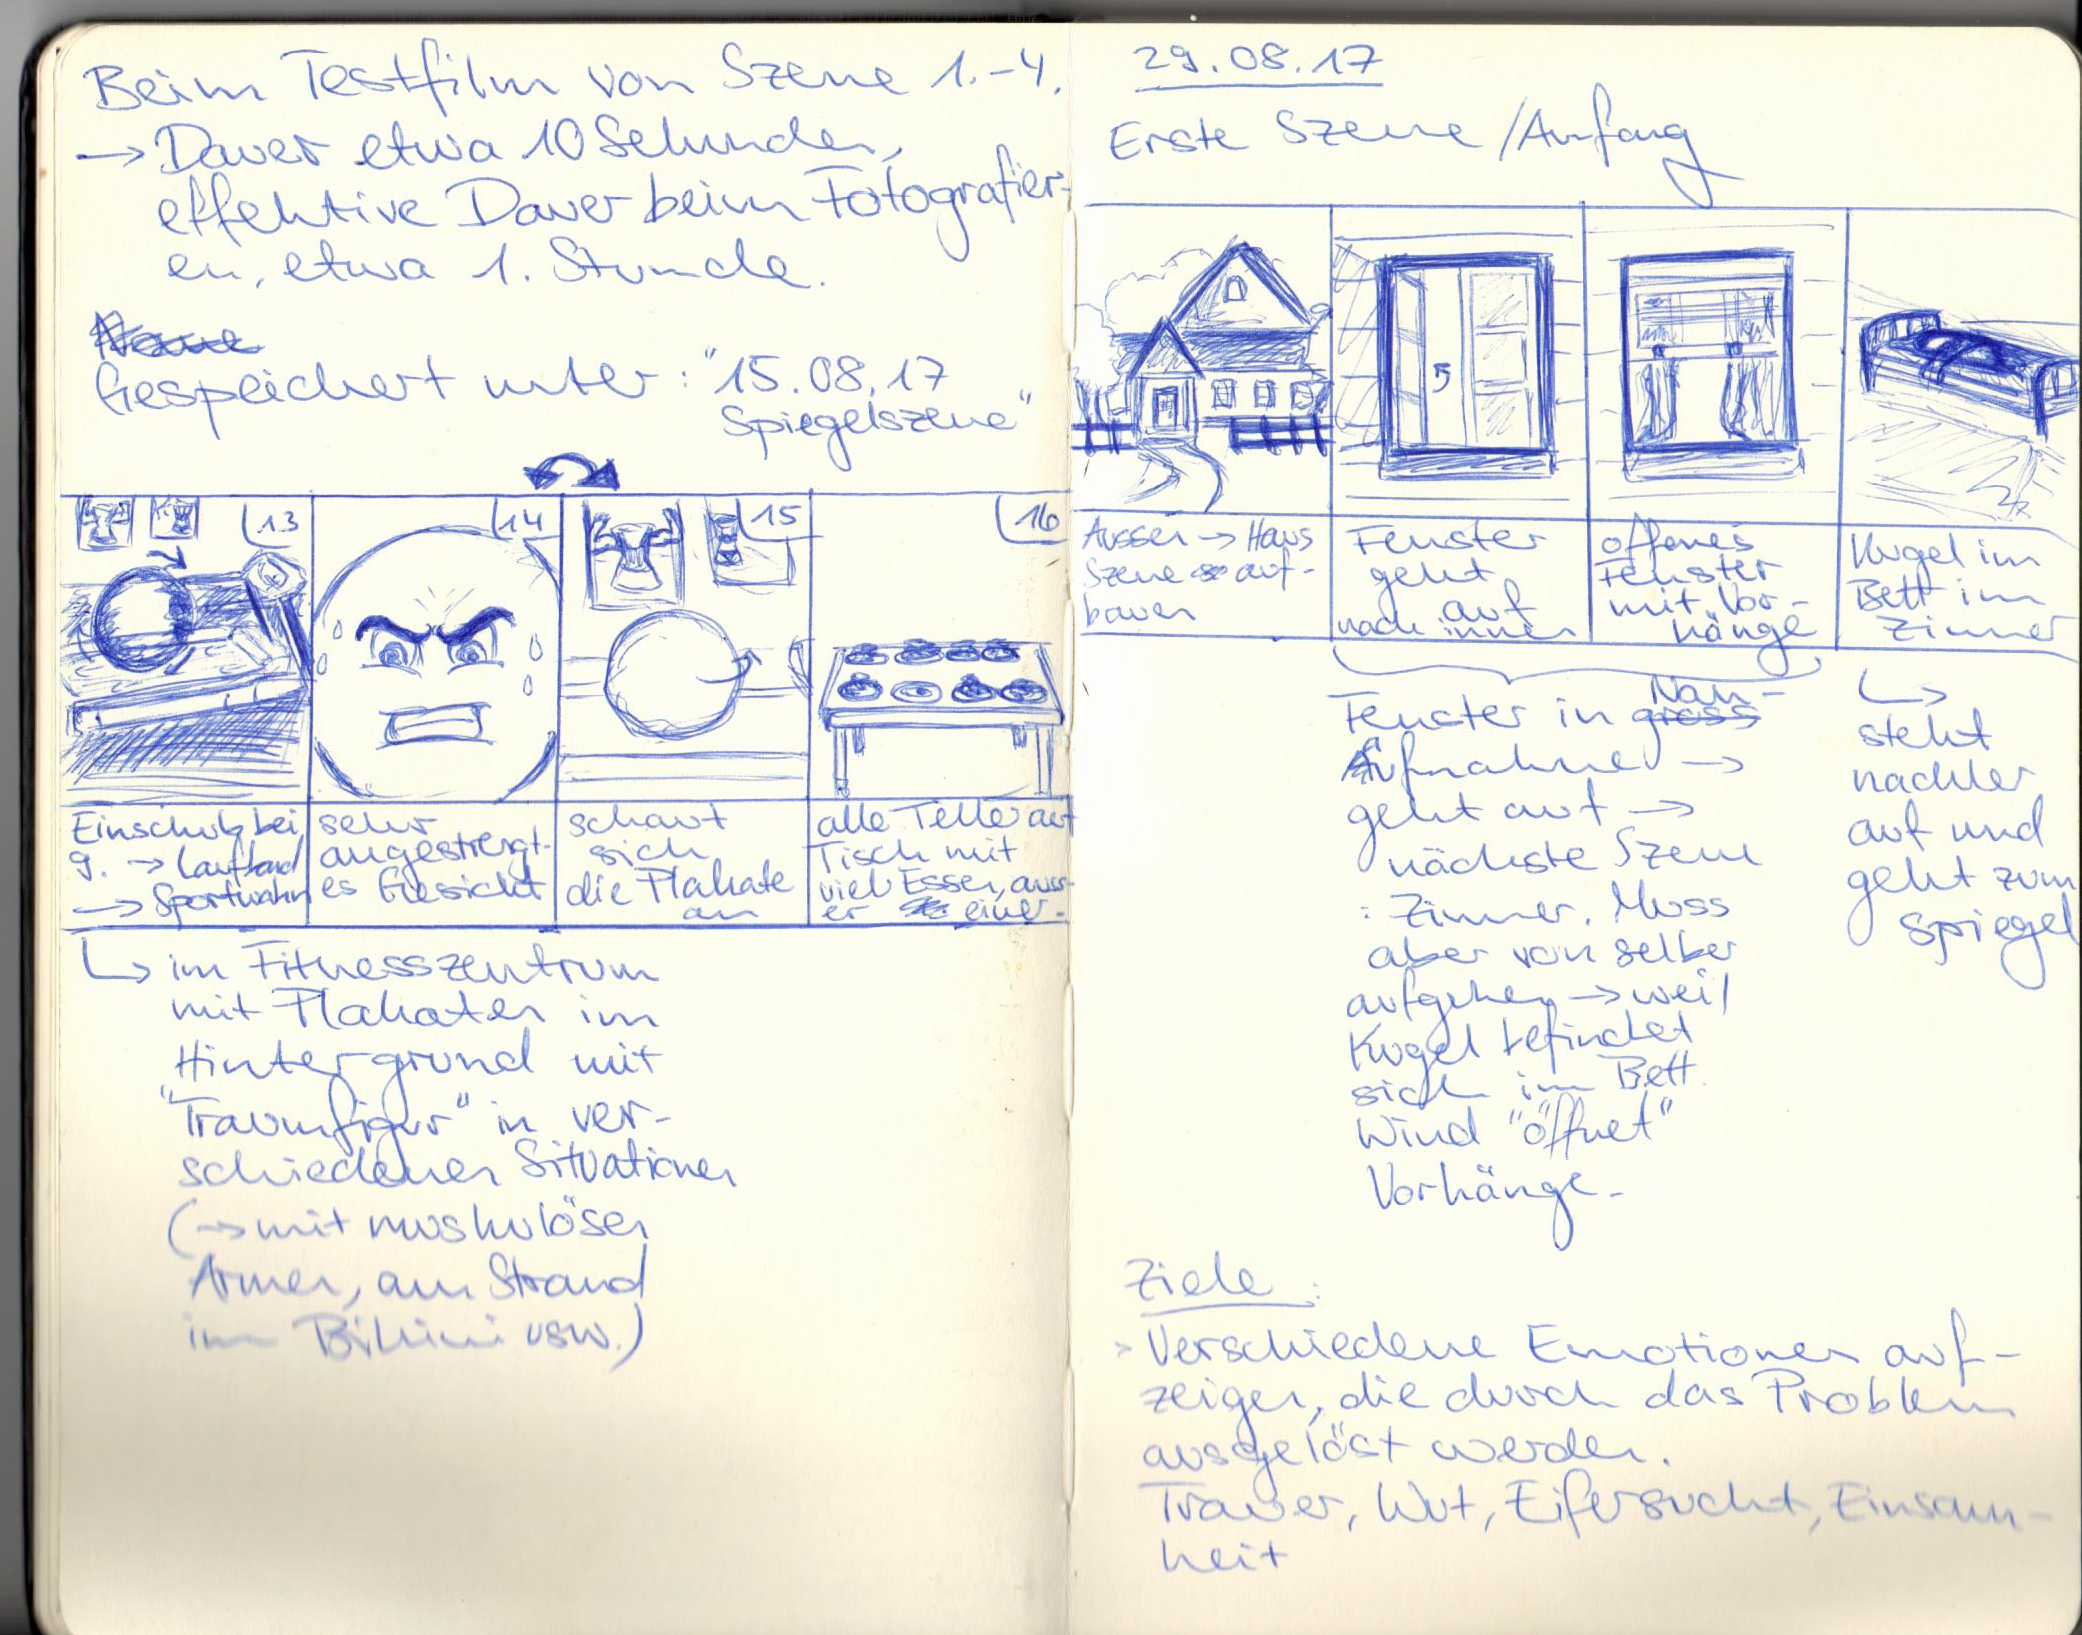 Beim Testfilm von Szene 1.-4.
→ Dauer etwa 10 Sekunden,
effektive Dauer beim Fotografier-
en, etwa 1. Stunde.
Gespeichert unter: "15.08.17
Spiegelszene"
13
14
15
16
Einschub bei
9. → Laufband
→ Sportwahn
sehr
angestrengt-
es Gesicht
schaut
sich
die Plakate
an
alle Teller auf
Tisch mit
viel Essen, auss-
er einer.
↳ im Fitnesszentrum
mit Plakaten im
Hintergrund mit
"Traumfigur" in ver-
schiedenen Situationen
(→ mit muskulösen
Armen, am Strand
im Bikini usw.)
29.08.17
Erste Szene / Anfang
Aussen → Haus
Szene auf-
bauen
Fenster
geht
auf
nach innen
offenes
Fenster
mit Vor-
hänge
Kugel im
Bett im
Zimmer
Nah-
Fenster in gross
Aufnahme →
geht auf →
nächste Szene
: Zimmer. Muss
aber von selber
aufgehen → weil
Kugel befindet
sich im Bett.
Wind "öffnet"
Vorhänge.
↳
steht
nachher
auf und
geht zum
Spiegel
Ziele:
> Verschiedene Emotionen auf-
zeigen, die durch das Problem
ausgelöst werden.
Trauer, Wut, Eifersucht, Einsam-
heit